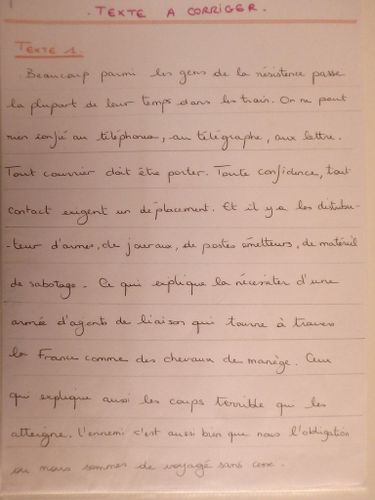 . TEXTE A CORRIGER .
TEXTE 1.
Beaucoup parmi les gens de la résistence passe
la plupart de leur temps dans les train. On ne peut
rien confié au téléphone, au télégraphe, aux lettre.
Tout courrier doit être porter. Toute confidence, tout
contact exigent un déplacement. Et il y a les distribu-
-teur d'armes, de journaux, de postes émetteurs, de matériel
de sabotage. Ce qui explique la nécessiter d'une
armée d'agents de liaison qui tourne à travers
la France comme des chevaux de manège. Ceux
qui explique aussi les coups terrible qui les
atteigne. L'ennemi c'est aussi bien que nous l'obligation
ou nous sommes de voyagé sans cesse.